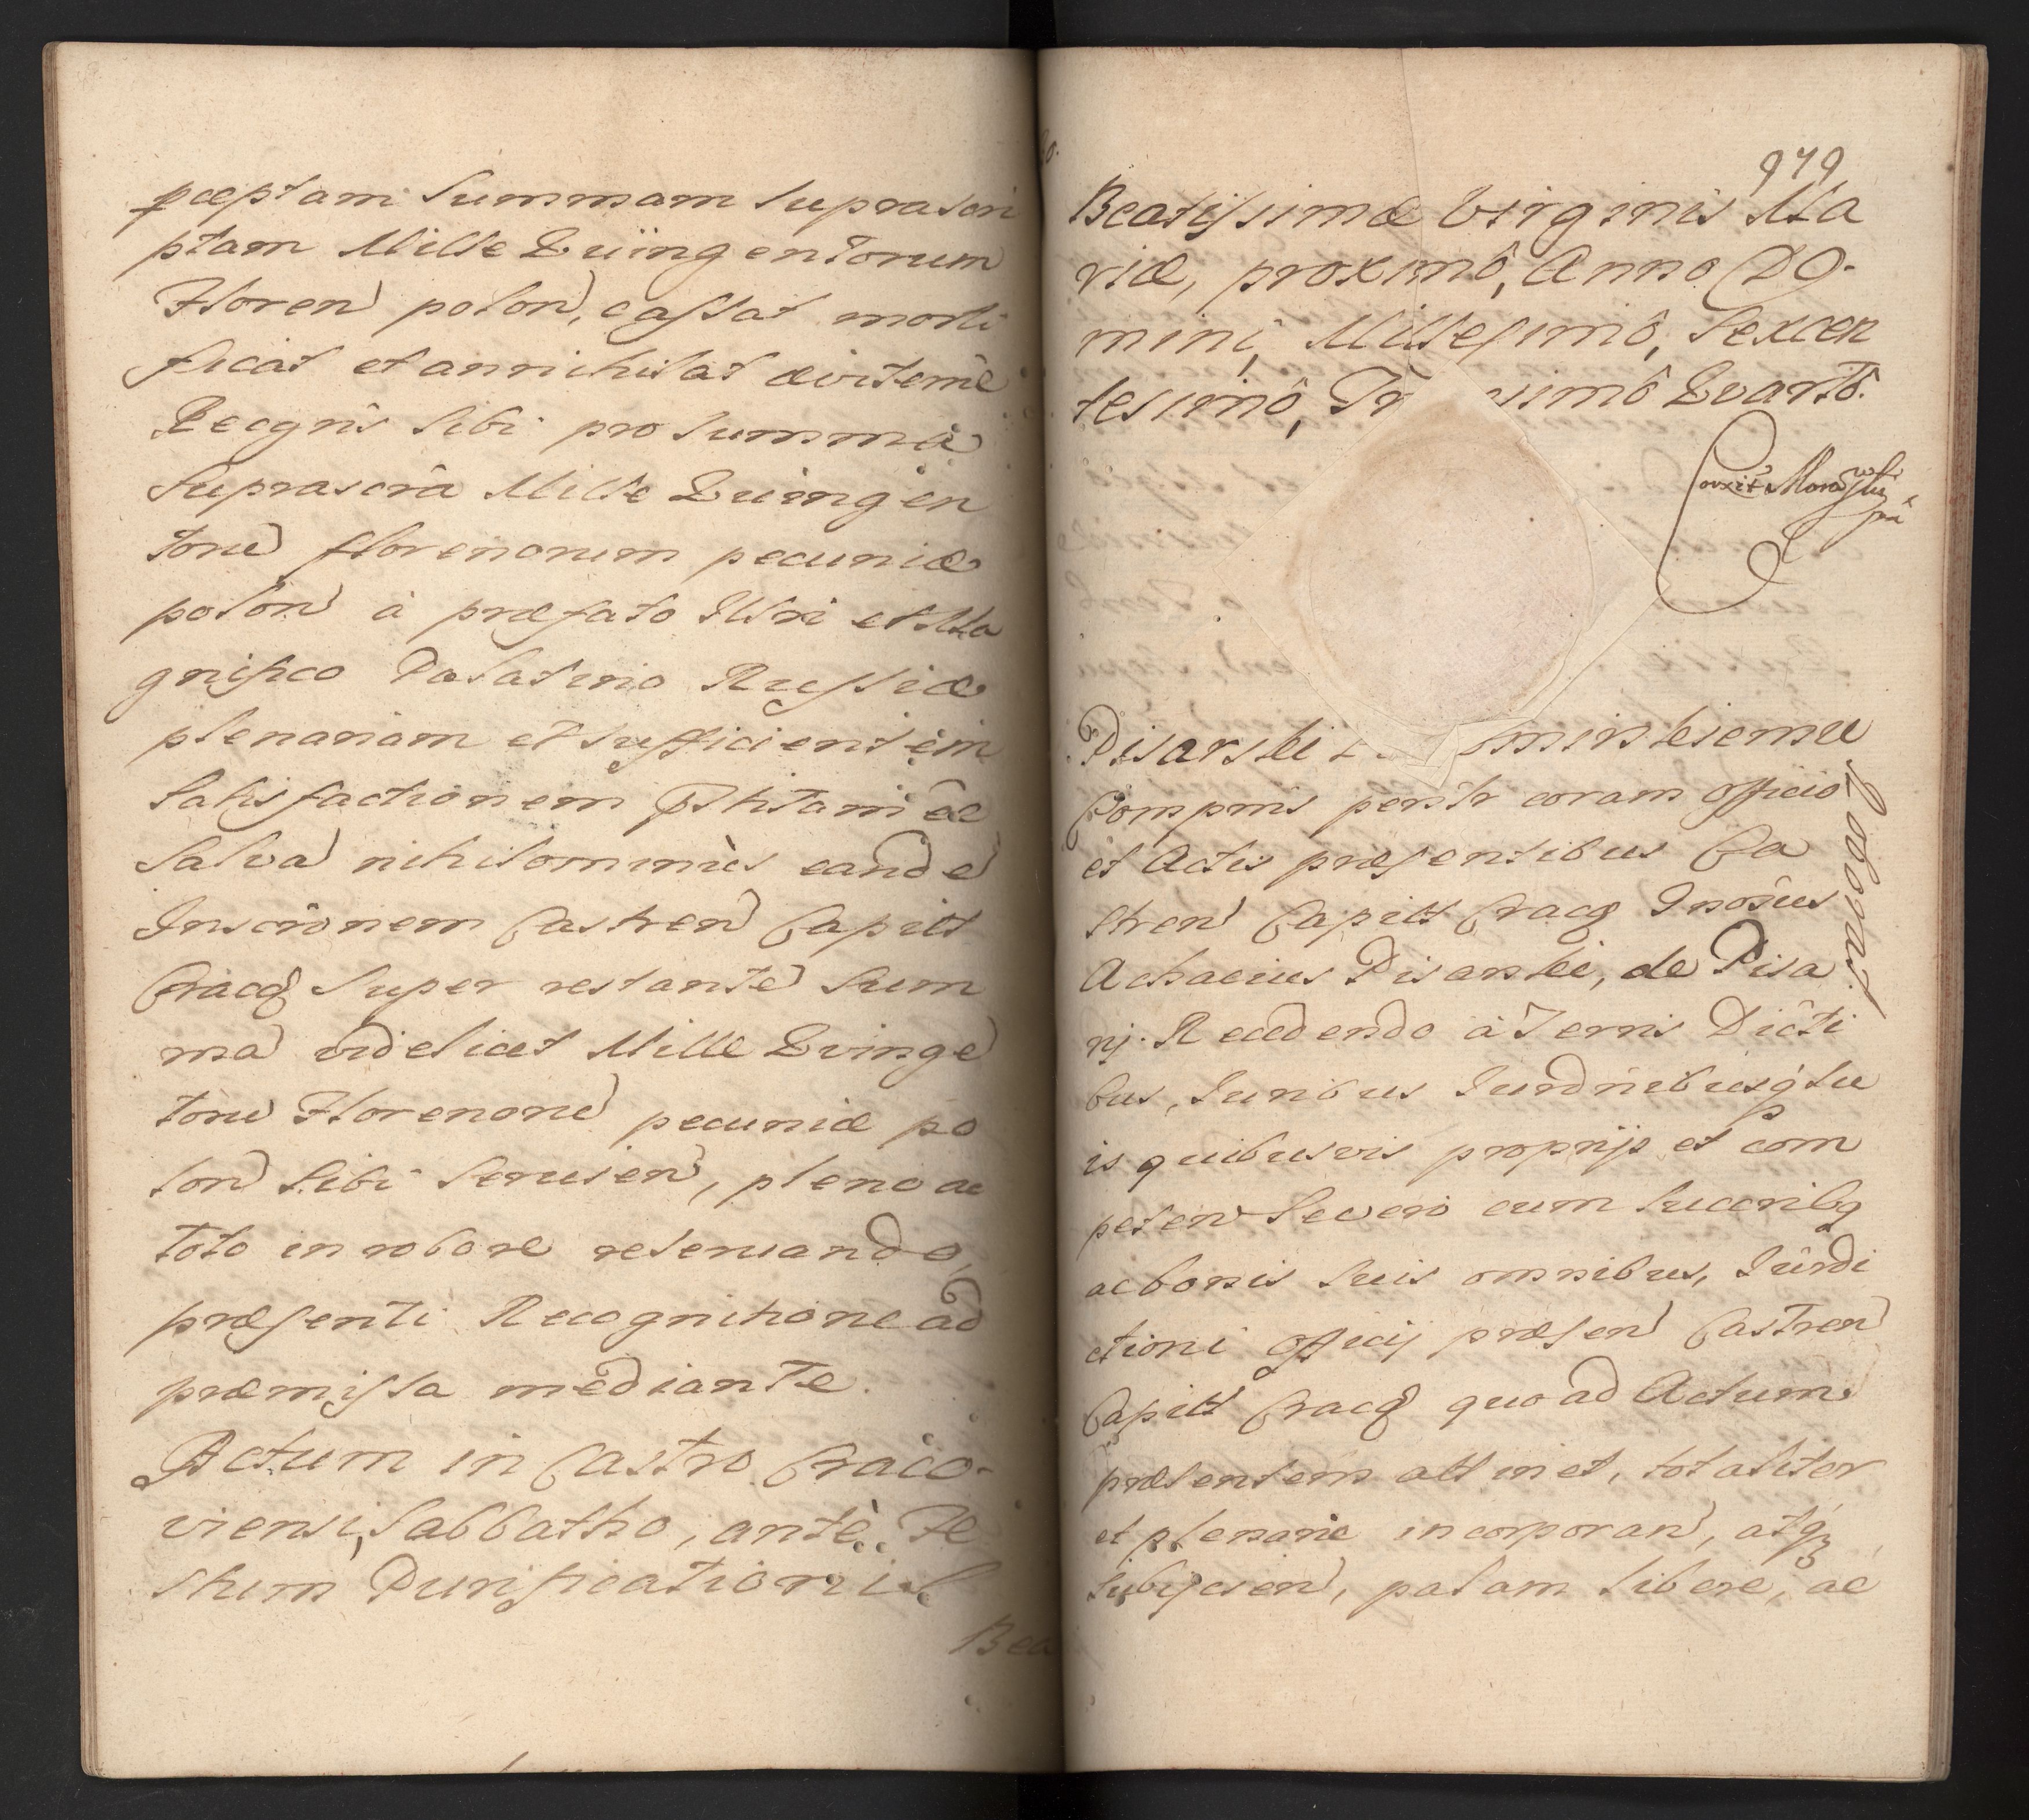 pceptam Summam suprascri
ptam Mille Quingentorum
Floren polon, cassat morti
ficat et annihilat
Recgnīs sibi pro summa
suprascrā Mille Quingen
toru florenorum pecuniæ
polon à præfato Illri et Ma
gnifico Palatino Russiæ
plenariam et sufficientem
satisfactionem
Salva nihilominùs eande
Inscrōnem Castren Capitt
Cracq super restante sum
ma videlicet Mille Quinge
toru Florenoru pecuniæ po
lon sibi seruien, pleno ac
toto in robore reseruando,
præsenti Recognitione ad
præmissa mediante.
Actum in Castro Craco-
viensi, Sabbatho, antè Fe
stum Purificationis
Bea
979
Beatissimæ Virginis Ma
riæ, proximô, Anno Do-
mini, Millesimô, Sexcen
tesimô, Tr simô Quartô.
Corxit Morawski
Pisarski minskiemu
Roborat
Compnis persłr coram officio
et Actis præsentibus Ca
stren Capitt Cracq Gnosus
Achacius Pisarski, de Pisa
rÿ. Recedendo à Terris Dicti
bus, Iuribus Iurdnibusq su
is quibusvis proprijs et com
peten Seuero cum succribq
ac bonis suis omnibus, Iurdi
ctioni officij præsen Castren
Capitt Cracq quo ad Actum
præsentem attinet, totaliter
et plenarie incorporan, atq
subijcien, palam libere, ac